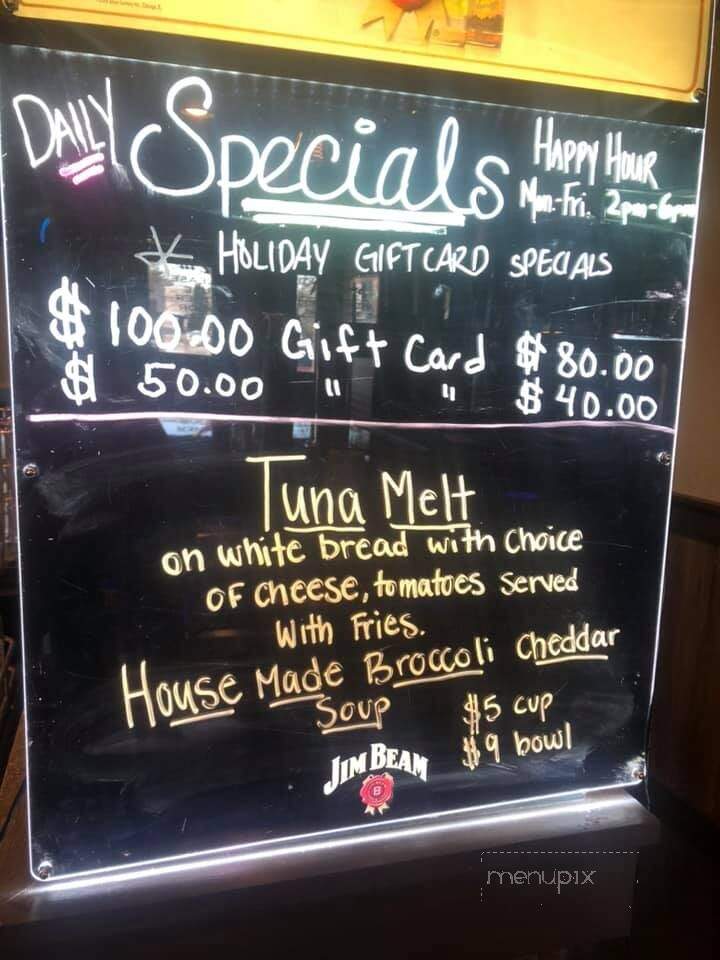 DAILY Specials HAPPY HOUR
Mon-Fri. 2pm-6pm
* HOLIDAY GIFTCARD SPECIALS
$100.00 Gift Card $80.00
$50.00 " " $40.00
Tuna Melt
on white bread with choice
OF cheese, tomatoes served
With Fries.
House Made Broccoli Cheddar
Soup $5 cup
$9 bowl
JIM BEAM
B
menupix